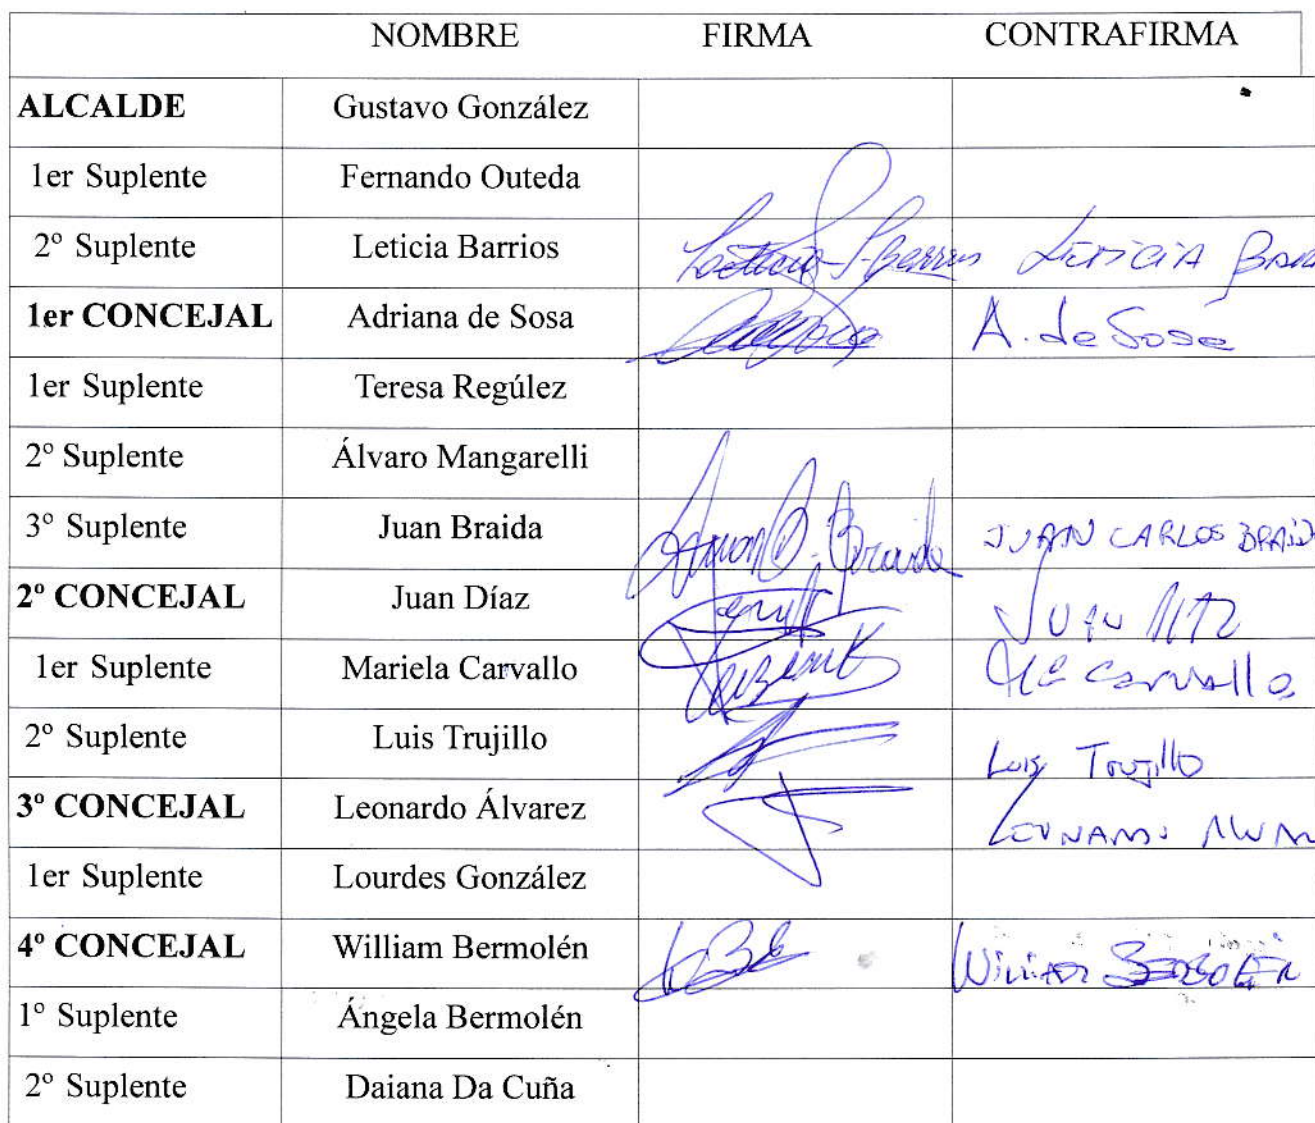 NOMBRE FIRMA CONTRAFIRMA
ALCALDE Gustavo González
1er Suplente Fernando Outeda
2º Suplente Leticia Barrios LETICIA
1er CONCEJAL Adriana de Sosa A. de Sosa
1er Suplente Teresa Regúlez
2º Suplente Álvaro Mangarelli
3º Suplente Juan Braida JUAN CARLOS BRAID
2º CONCEJAL Juan Díaz JUAN
1er Suplente Mariela Carvallo Carvallo
2º Suplente Luis Trujillo Luis Trujillo
3º CONCEJAL Leonardo Álvarez
1er Suplente Lourdes González
4º CONCEJAL William Bermolén
1º Suplente Ángela Bermolén
2º Suplente Daiana Da Cuña